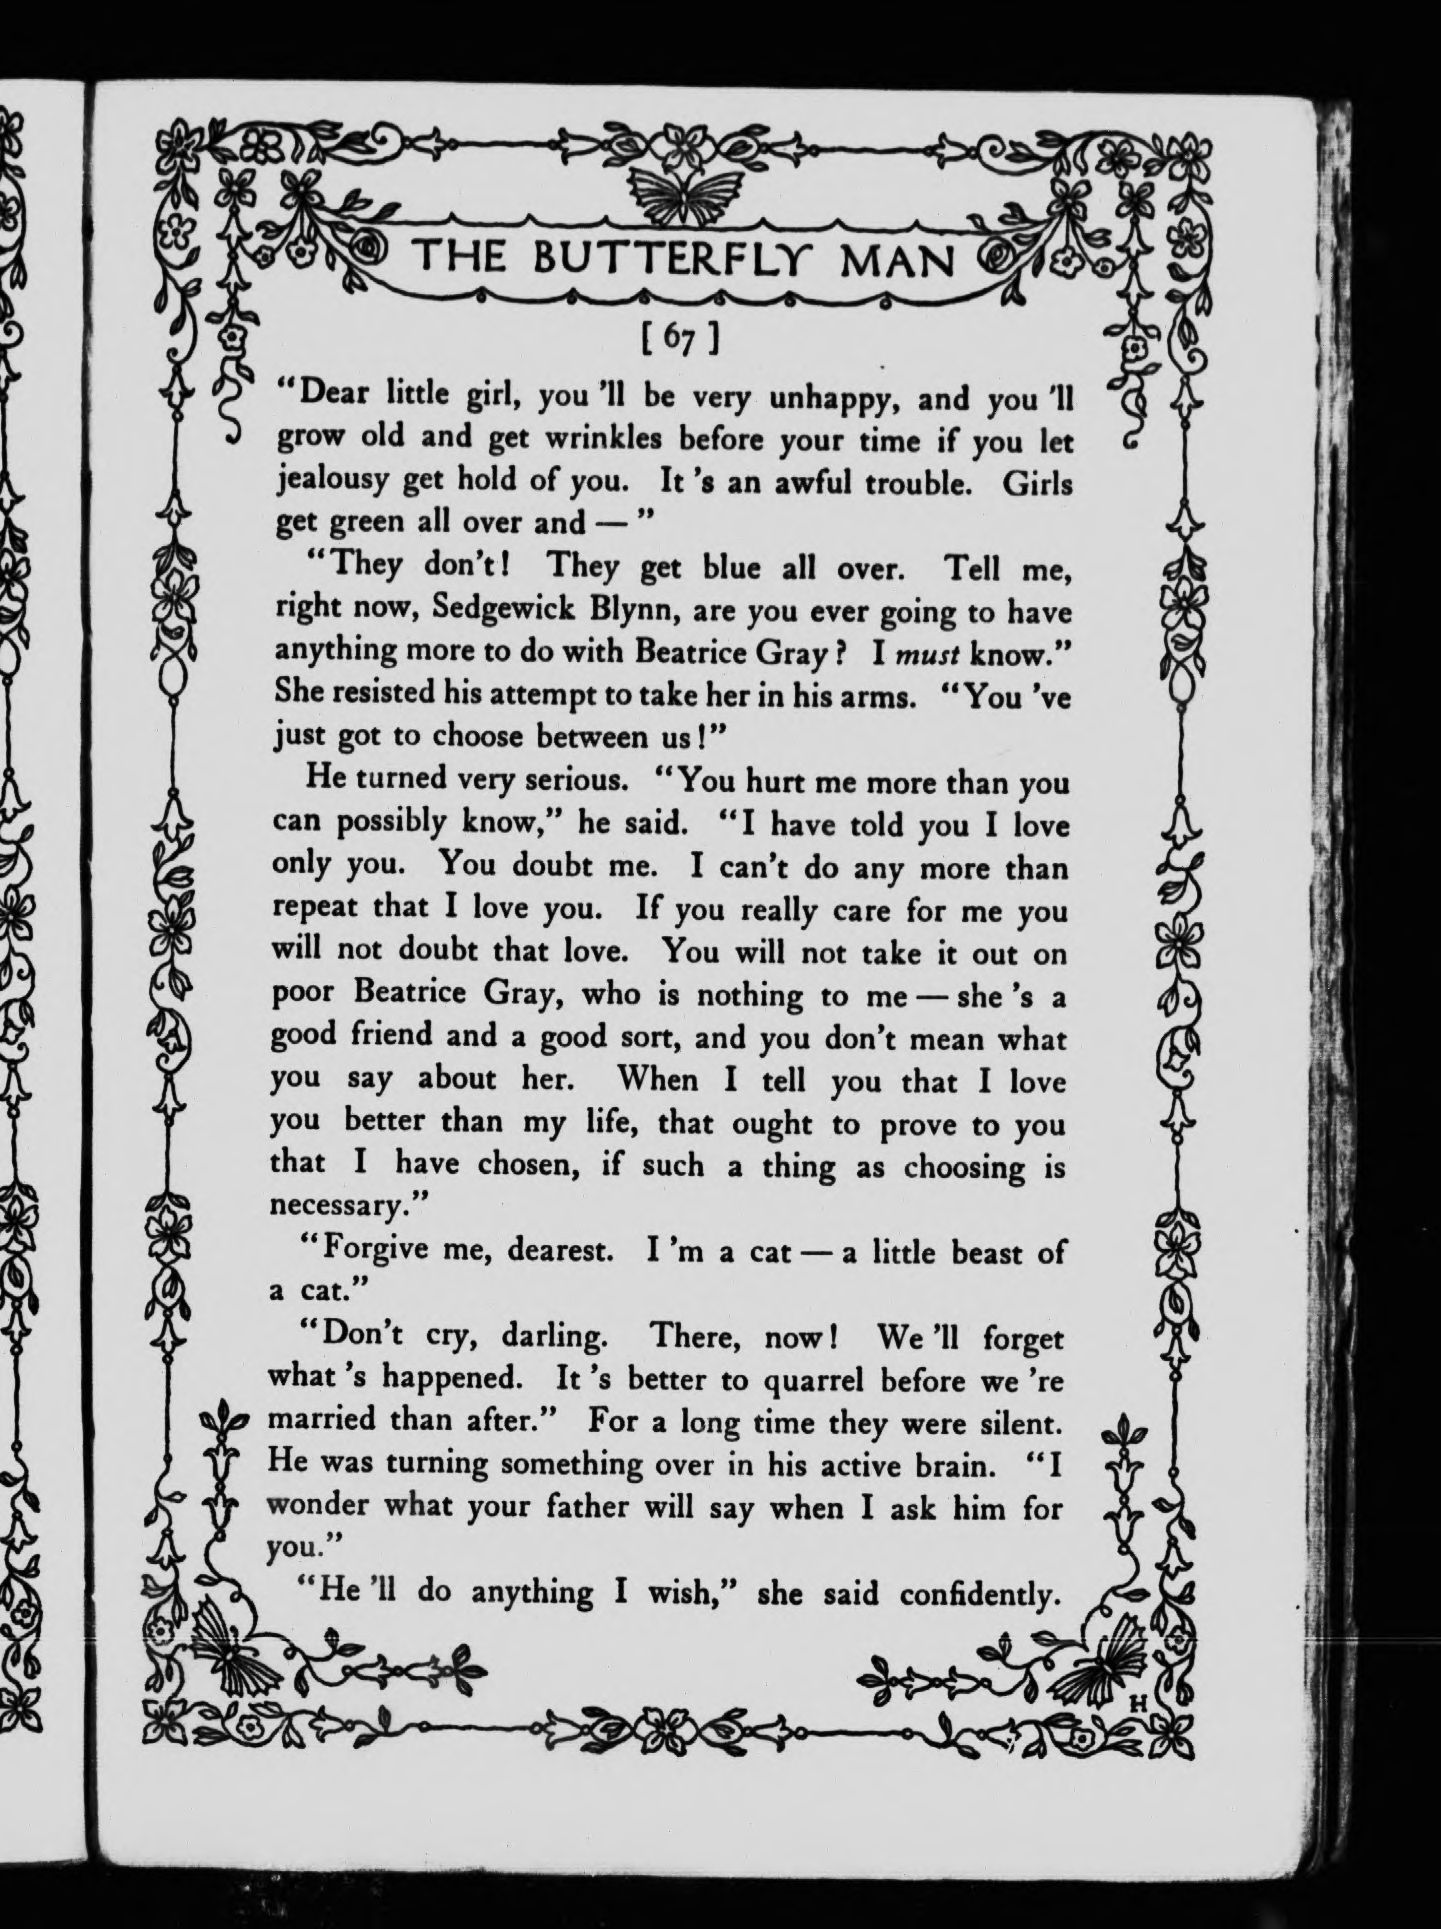 THE BUTTERFLY MAN
[ 67 ]
“Dear little girl, you ’ll be very unhappy, and you ’ll
grow old and get wrinkles before your time if you let
jealousy get hold of you. It ’s an awful trouble. Girls
get green all over and — ”
“They don’t! They get blue all over. Tell me,
right now, Sedgewick Blynn, are you ever going to have
anything more to do with Beatrice Gray? I must know.”
She resisted his attempt to take her in his arms. “You ’ve
just got to choose between us!”
He turned very serious. “You hurt me more than you
can possibly know,” he said. “I have told you I love
only you. You doubt me. I can’t do any more than
repeat that I love you. If you really care for me you
will not doubt that love. You will not take it out on
poor Beatrice Gray, who is nothing to me — she ’s a
good friend and a good sort, and you don’t mean what
you say about her. When I tell you that I love
you better than my life, that ought to prove to you
that I have chosen, if such a thing as choosing is
necessary.”
“Forgive me, dearest. I ’m a cat — a little beast of
a cat.”
“Don’t cry, darling. There, now! We ’ll forget
what ’s happened. It ’s better to quarrel before we ’re
married than after.” For a long time they were silent.
He was turning something over in his active brain. “I
wonder what your father will say when I ask him for
you.”
“He ’ll do anything I wish,” she said confidently.
H